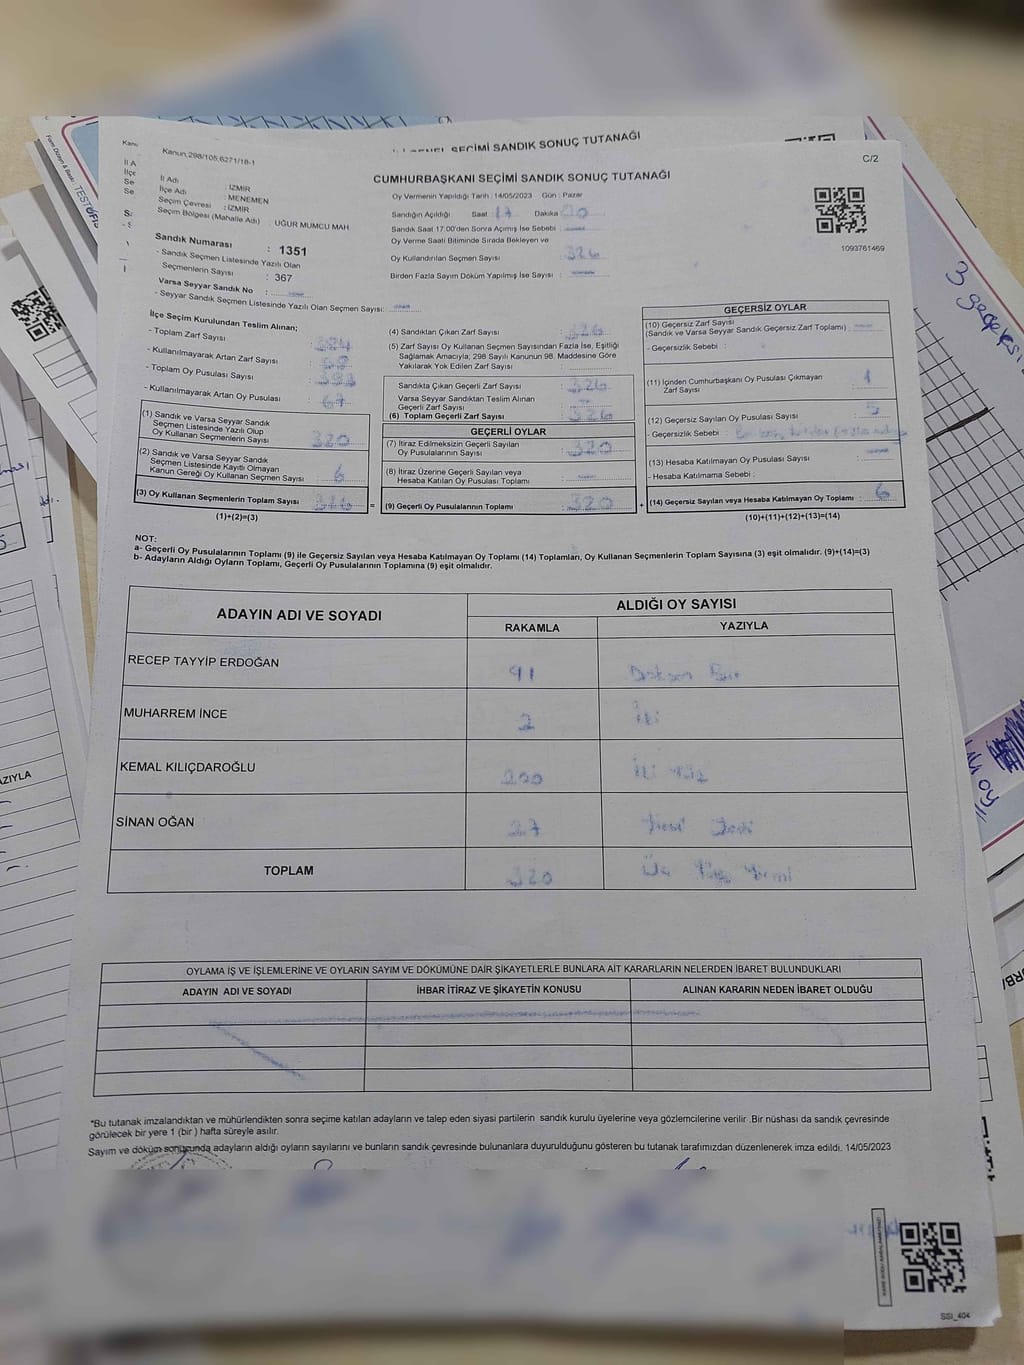 GENEL SEÇİMİ SANDIK SONUÇ TUTANAĞI
Kanun,298/105,6271/18-1
C/2
CUMHURBAŞKANI SEÇİMİ SANDIK SONUÇ TUTANAĞI
İl Adı : İZMİR
İlçe Adı : MENEMEN
Seçim Çevresi : İZMİR
Seçim Bölgesi (Mahalle Adı) : UĞUR MUMCU MAH
Oy Vermenin Yapıldığı Tarih : 14/05/2023 Gün : Pazar
Sandığın Açıldığı Saat 17 Dakika 00
Sandık Saat 17:00'den Sonra Açımış İse Sebebi :
Oy Verme Saati Bitiminde Sırada Bekleyen ve
Oy Kullandırılan Seçmen Sayısı : 326
Birden Fazla Sayım Döküm Yapılmış İse Sayısı :
1093761469
3 geçersiz
Sandık Numarası : 1351
- Sandık Seçmen Listesinde Yazılı Olan
Seçmenlerin Sayısı : 367
Varsa Seyyar Sandık No :
- Seyyar Sandık Seçmen Listesinde Yazılı Olan Seçmen Sayısı:
İlçe Seçim Kurulundan Teslim Alınan;
- Toplam Zarf Sayısı :
- Kullanılmayarak Artan Zarf Sayısı :
- Toplam Oy Pusulası Sayısı :
- Kullanılmayarak Artan Oy Pusulası : 67
(1) Sandık ve Varsa Seyyar Sandık
Seçmen Listesinde Yazılı Olup
Oy Kullanan Seçmenlerin Sayısı : 320
(2) Sandık ve Varsa Seyyar Sandık
Seçmen Listesinde Kayıtlı Olmayan
Kanun Gereği Oy Kullanan Seçmen Sayısı : 6
(3) Oy Kullanan Seçmenlerin Toplam Sayısı : 326 =
(1)+(2)=(3)
(4) Sandıktan Çıkan Zarf Sayısı : 326
(5) Zarf Sayısı Oy Kullanan Seçmen Sayısından Fazla İse, Eşitliği
Sağlamak Amacıyla; 298 Sayılı Kanunun 98. Maddesine Göre
Yakılarak Yok Edilen Zarf Sayısı :
Sandıkta Çıkan Geçerli Zarf Sayısı : 326
Varsa Seyyar Sandıktan Teslim Alınan
Geçerli Zarf Sayısı :
(6) Toplam Geçerli Zarf Sayısı : 326
GEÇERLİ OYLAR
(7) İtiraz Edilmeksizin Geçerli Sayılan
Oy Pusulasının Sayısı : 320
(8) İtiraz Üzerine Geçerli Sayılan veya
Hesaba Katılan Oy Pusulası Toplamı :
(9) Geçerli Oy Pusulalarının Toplamı : 320 +
GEÇERSİZ OYLAR
(10) Geçersiz Zarf Sayısı
(Sandık ve Varsa Seyyar Sandık Geçersiz Zarf Toplamı) :
- Geçersizlik Sebebi :
(11) İçinden Cumhurbaşkanı Oy Pusulası Çıkmayan
Zarf Sayısı : 1
(12) Geçersiz Sayılan Oy Pusulası Sayısı : 5
- Geçersizlik Sebebi :
(13) Hesaba Katılmayan Oy Pusulası Sayısı :
- Hesaba Katılmama Sebebi :
(14) Geçersiz Sayılan veya Hesaba Katılmayan Oy Toplamı : 6
(10)+(11)+(12)+(13)=(14)
NOT:
a- Geçerli Oy Pusulalarının Toplamı (9) ile Geçersiz Sayılan veya Hesaba Katılmayan Oy Toplamı (14) Toplamları, Oy Kullanan Seçmenlerin Toplam Sayısına (3) eşit olmalıdır. (9)+(14)=(3)
b- Adayların Aldığı Oyların Toplamı, Geçerli Oy Pusulalarının Toplamına (9) eşit olmalıdır.
ADAYIN ADI VE SOYADI
ALDIĞI OY SAYISI
RAKAMLA YAZIYLA
RECEP TAYYİP ERDOĞAN 91 Doksan Bir
MUHARREM İNCE 2 İki
KEMAL KILIÇDAROĞLU 200 İki Yüz
SİNAN OĞAN 27 Yirmi Yedi
TOPLAM 320 Üç Yüz Yirmi
OYLAMA İŞ VE İŞLEMLERİNE VE OYLARIN SAYIM VE DÖKÜMÜNE DAİR ŞİKAYETLERLE BUNLARA AİT KARARLARIN NELERDEN İBARET BULUNDUKLARI
ADAYIN ADI VE SOYADI İHBAR İTİRAZ VE ŞİKAYETİN KONUSU ALINAN KARARIN NEDEN İBARET OLDUĞU
*Bu tutanak imzalandıktan ve mühürlendikten sonra seçime katılan adayların ve talep eden siyasi partilerin sandık kurulu üyelerine veya gözlemcilerine verilir .Bir nüshası da sandık çevresinde
görülecek bir yere 1 (bir ) hafta süreyle asılır.
Sayım ve döküm sonucunda adayların aldığı oyların sayılarını ve bunların sandık çevresinde bulunanlara duyurulduğunu gösteren bu tutanak tarafımızdan düzenlenerek imza edildi. 14/05/2023
SSI_404